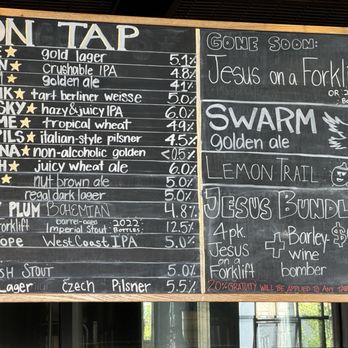 ON TAP
gold lager 5.1%
Crushable IPA 4.8%
golden ale 4.1%
tart berliner weisse 5.0%
SKY hazy & juicy IPA 6.0%
ME tropical wheat 4.9%
PILS italian-style pilsner 4.5%
NA non-alcoholic golden <0.5%
juicy wheat ale 6.0%
nut brown ale 5.0%
regal dark lager 5.0%
PLUM BOHEMIAN 4.8%
Forklift barrel-aged Imperial Stout 2022 BOTTLES 12.5%
ope West Coast IPA 5.0%
SH STOUT 5.0%
Lager Czech Pilsner 5.5%
GONE SOON:
Jesus on a Forkli
OR 2
SWARM
golden ale
LEMON TRAIL
JESUS BUNDL
4 pk. Jesus on a Forklift + Barley wine bomber $
20% GRATUITY WILL BE APPLIED TO ANY TAB